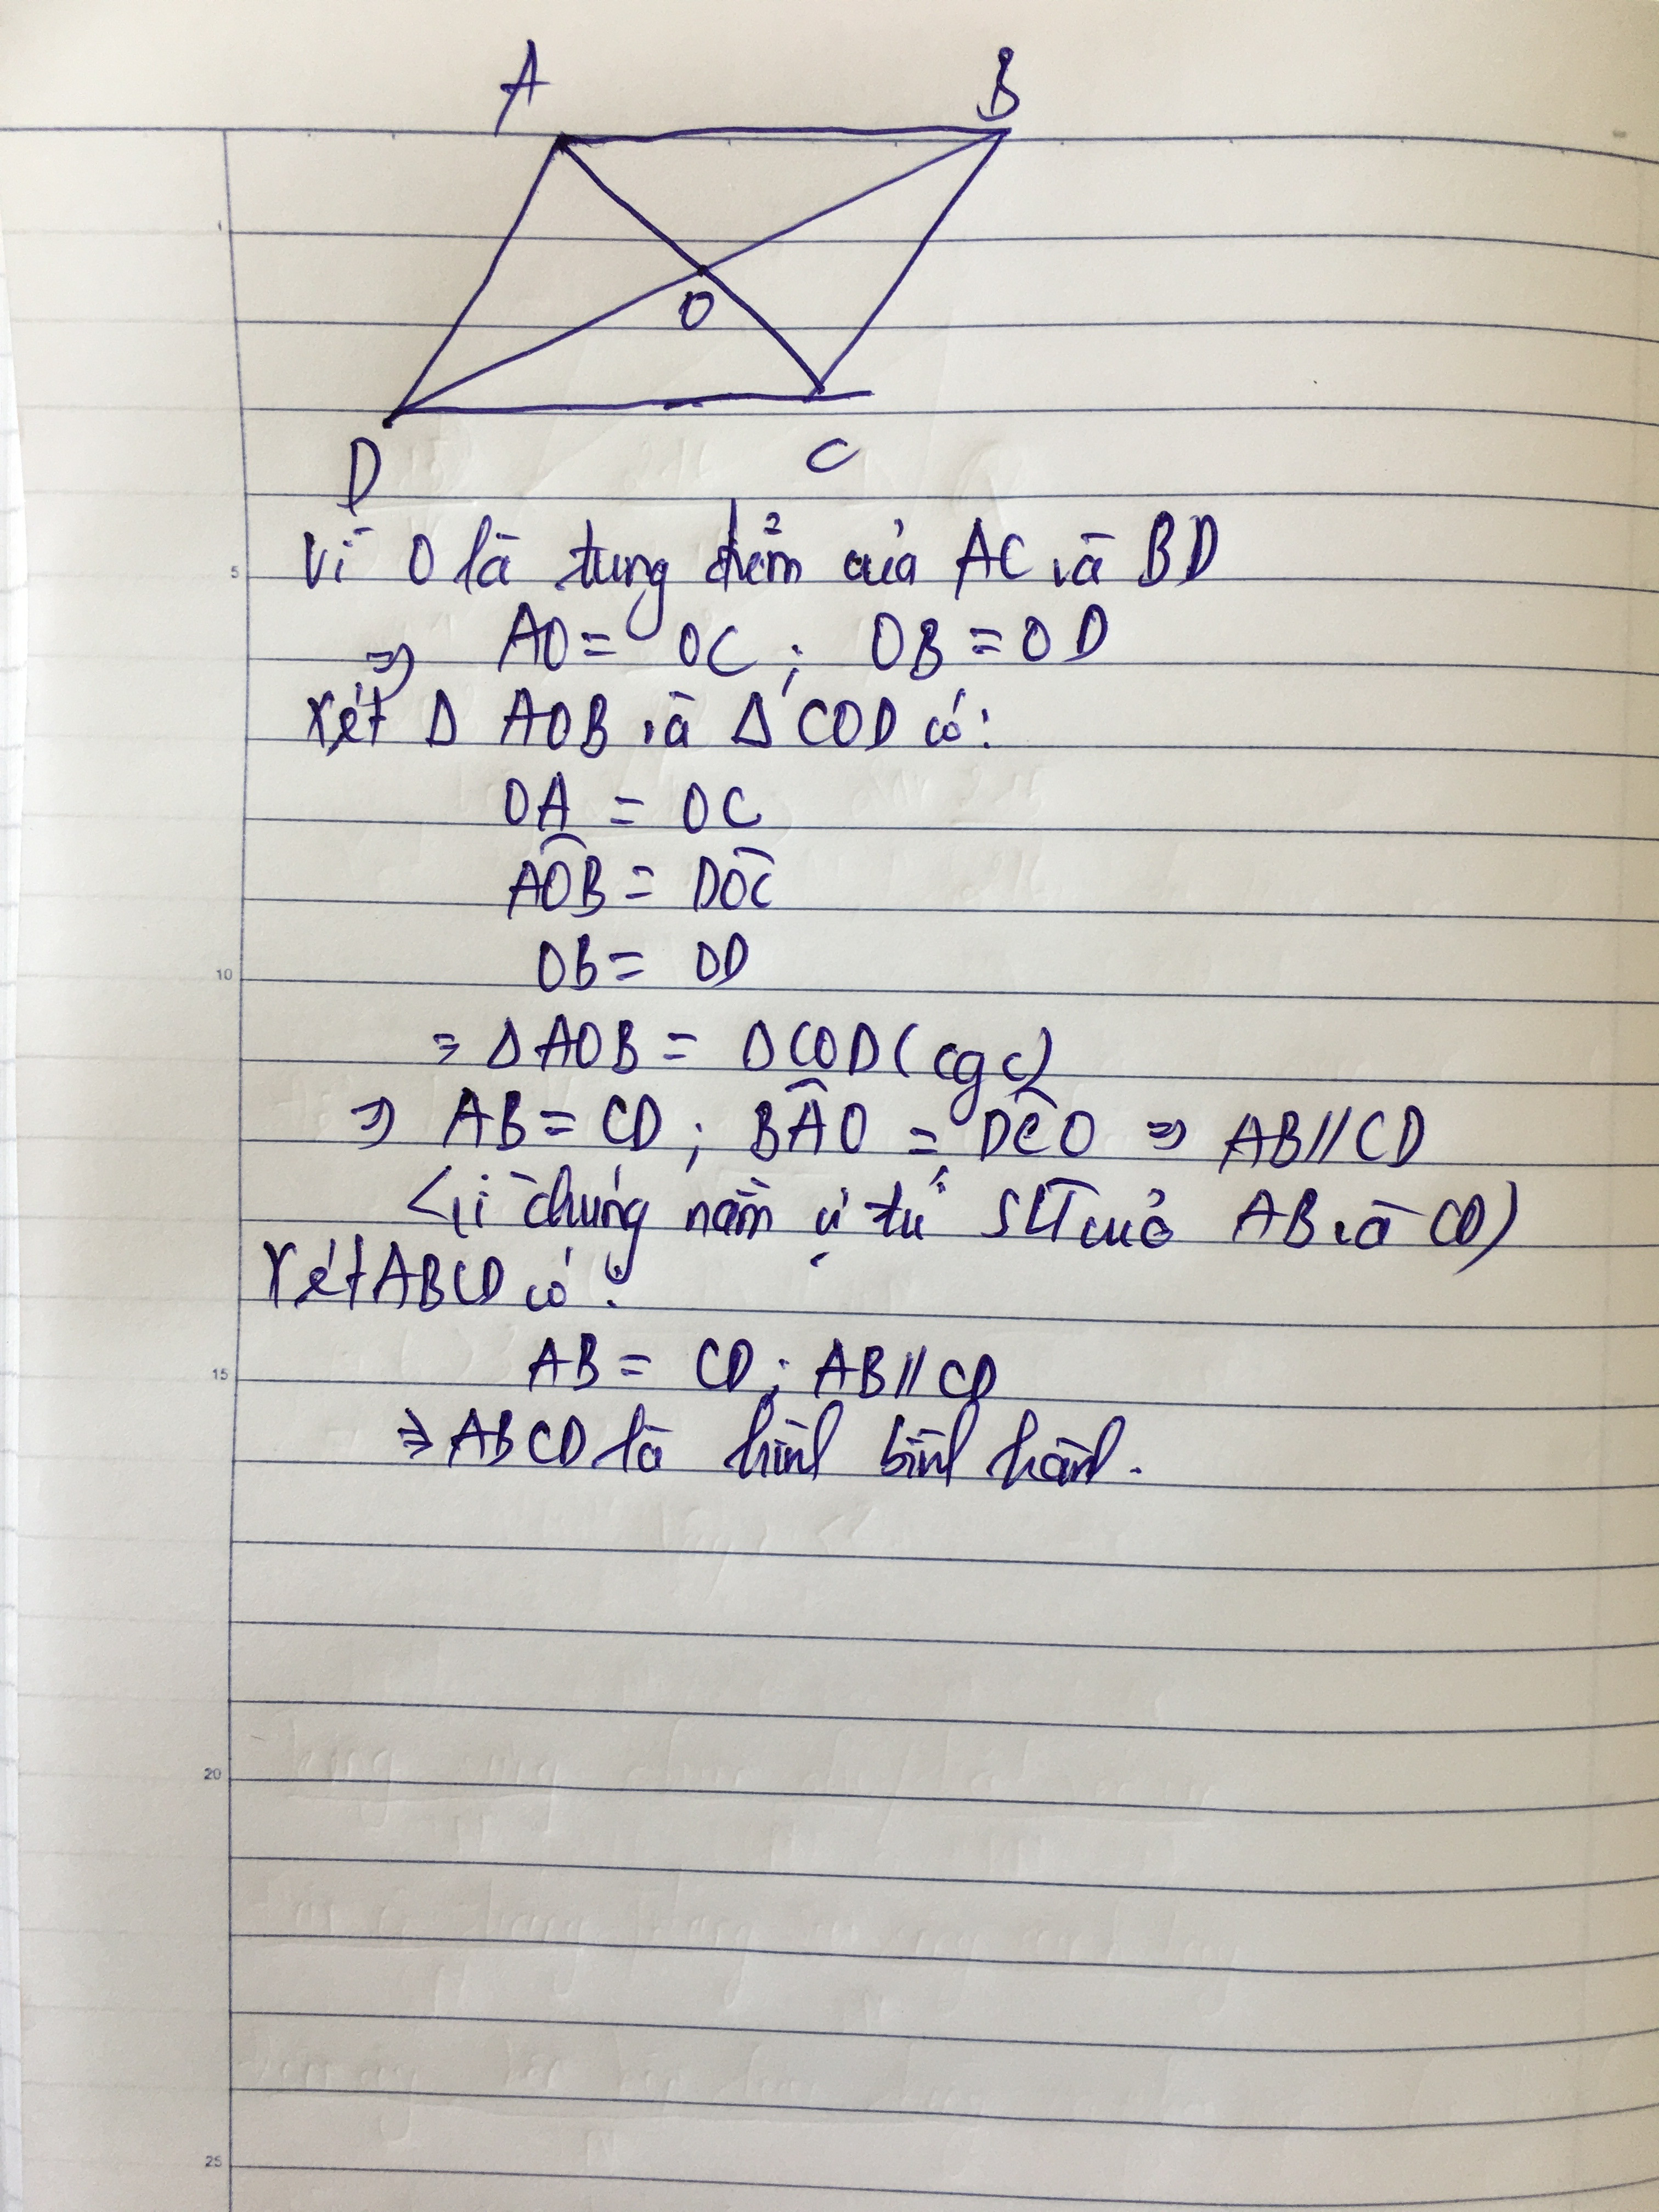 A B
O
D C
Vì O là trung điểm của AC và BD
5
⇒ AO = OC ; OB = OD
Xét Δ AOB và Δ COD có:
OA = OC
AOB = DOC
OB = OD
10
= Δ AOB = Δ COD (cgc)
⇒ AB = CD ; BAO = DCO ⇒ AB // CD
(vì chúng nằm ở SLT của AB và CD)
Xét ABCD có :
AB = CD ; AB // CD
15
⇒ ABCD là hình bình hành.
20
25